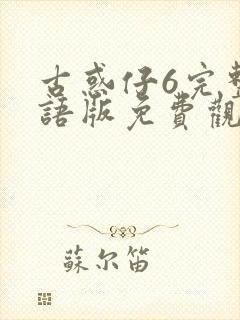 古惑仔6完整
語版免費觀
蘇尔笛